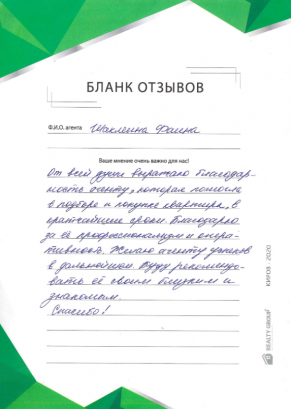 БЛАНК ОТЗЫВОВ
Ф.И.О. агента Шаклеина Фаина
Ваше мнение очень важно для нас!
От всей души выражаю благодар-
ность агенту, которая помогла
в подборе и покупке квартиры, в
кратчайшие сроки. Благодарю
за её профессионализм и опера-
тивность. Желаю агенту успехов
в дальнейшем. Буду рекомендо-
вать её своим близким и
знакомым.
Спасибо!
КИРОВ - 2020
REALTY GROUP